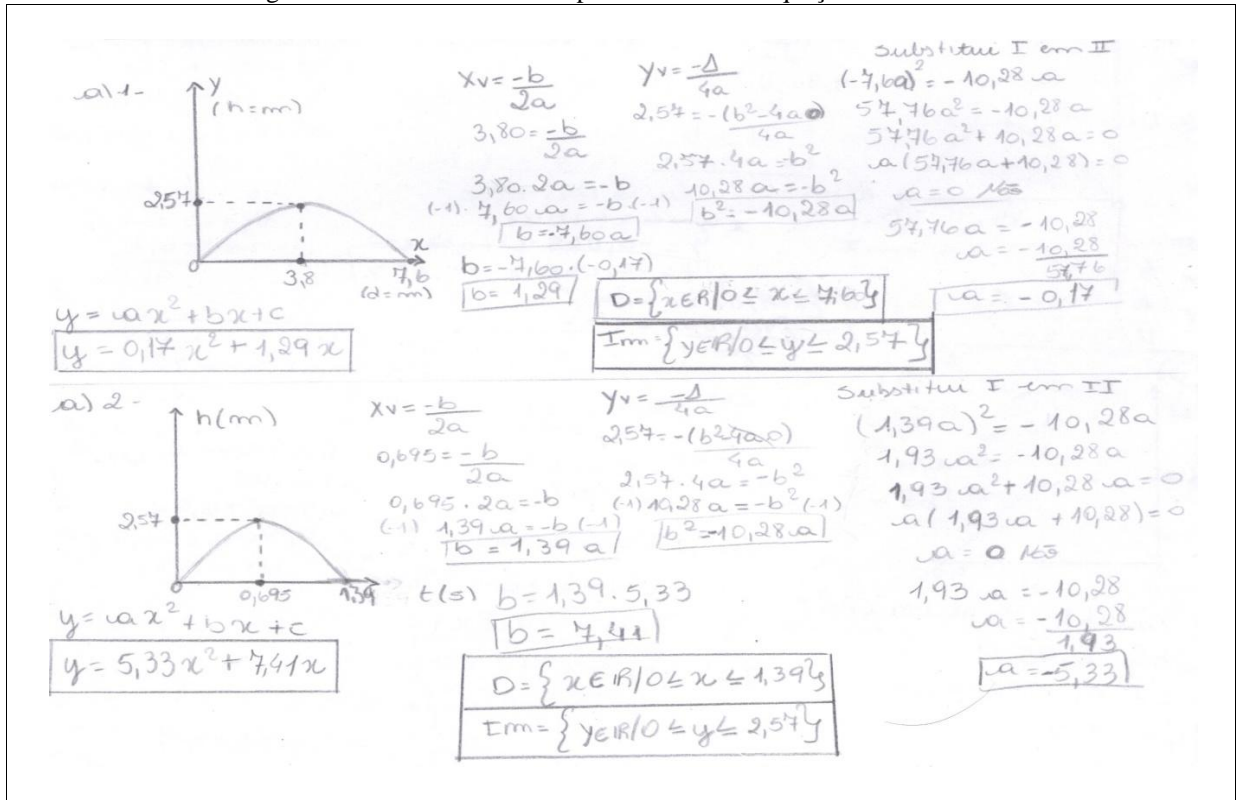 a) 1-
y
(h=m)
2,57
0
3,8
7,6
x
(d=m)
y = ax² + bx + c
y = 0,17 x² + 1,29 x
Xv = -b/2a
3,80 = -b/2a
3,80 . 2a = -b
(-1) . 7,60 a = -b (-1)
b = -7,60 a
b = -7,60 . (-0,17)
b = 1,29
Yv = -Δ/4a
2,57 = -(b² - 4a0)/4a
2,57 . 4a = -b²
10,28 a = -b²
b² = -10,28 a
D = {x ∈ R / 0 ≤ x ≤ 7,60}
Im = {y ∈ R / 0 ≤ y ≤ 2,57}
Substitui I em II
(-7,6a)² = -10,28 a
57,76 a² = -10,28 a
57,76 a² + 10,28 a = 0
a (57,76 a + 10,28) = 0
a = 0 Não
57,76 a = -10,28
a = -10,28/57,76
a = -0,17
a) 2-
h(m)
2,57
0
0,695
1,39
t(s)
y = ax² + bx + c
y = 5,33 x² + 7,41 x
Xv = -b/2a
0,695 = -b/2a
0,695 . 2a = -b
(-1) 1,39 a = -b (-1)
b = 1,39 a
b = 1,39 . 5,33
b = 7,41
Yv = -Δ/4a
2,57 = -(b² 4a0)/4a
2,57 . 4a = -b²
(-1) 10,28 a = -b² (-1)
b² = -10,28 a
D = {x ∈ R / 0 ≤ x ≤ 1,39}
Im = {y ∈ R / 0 ≤ y ≤ 2,57}
Substitui I em II
(1,39 a)² = -10,28 a
1,93 a² = -10,28 a
1,93 a² + 10,28 a = 0
a (1,93 a + 10,28) = 0
a = 0 Não
1,93 a = -10,28
a = -10,28/1,93
a = -5,33